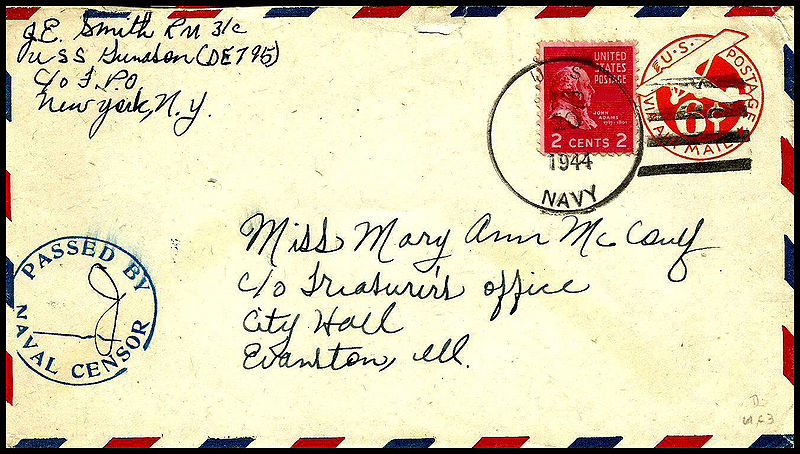 J.E. Smith RM 3/c
USS Gunason (DE795)
c/o F.P.O
New york, N.Y.
UNITED
STATES
POSTAGE
JOHN
ADAMS
1797-1801
2 CENTS 2
U.S. POSTAGE
6¢
VIA AIR MAIL
1944
NAVY
PASSED BY
NAVAL CENSOR
Miss Mary Ann
c/o Treasurer's office
City Hall
Evanston, Ill.